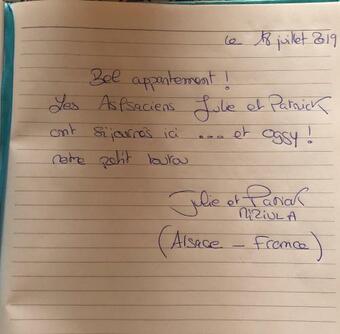 Le 18 juillet 2019
Bel appartement !
Les Alsaciens Julie et Patrick
ont séjournés ici .... et Oggy !
notre petit toutou
Julie et Patrick
(Alsace - France)